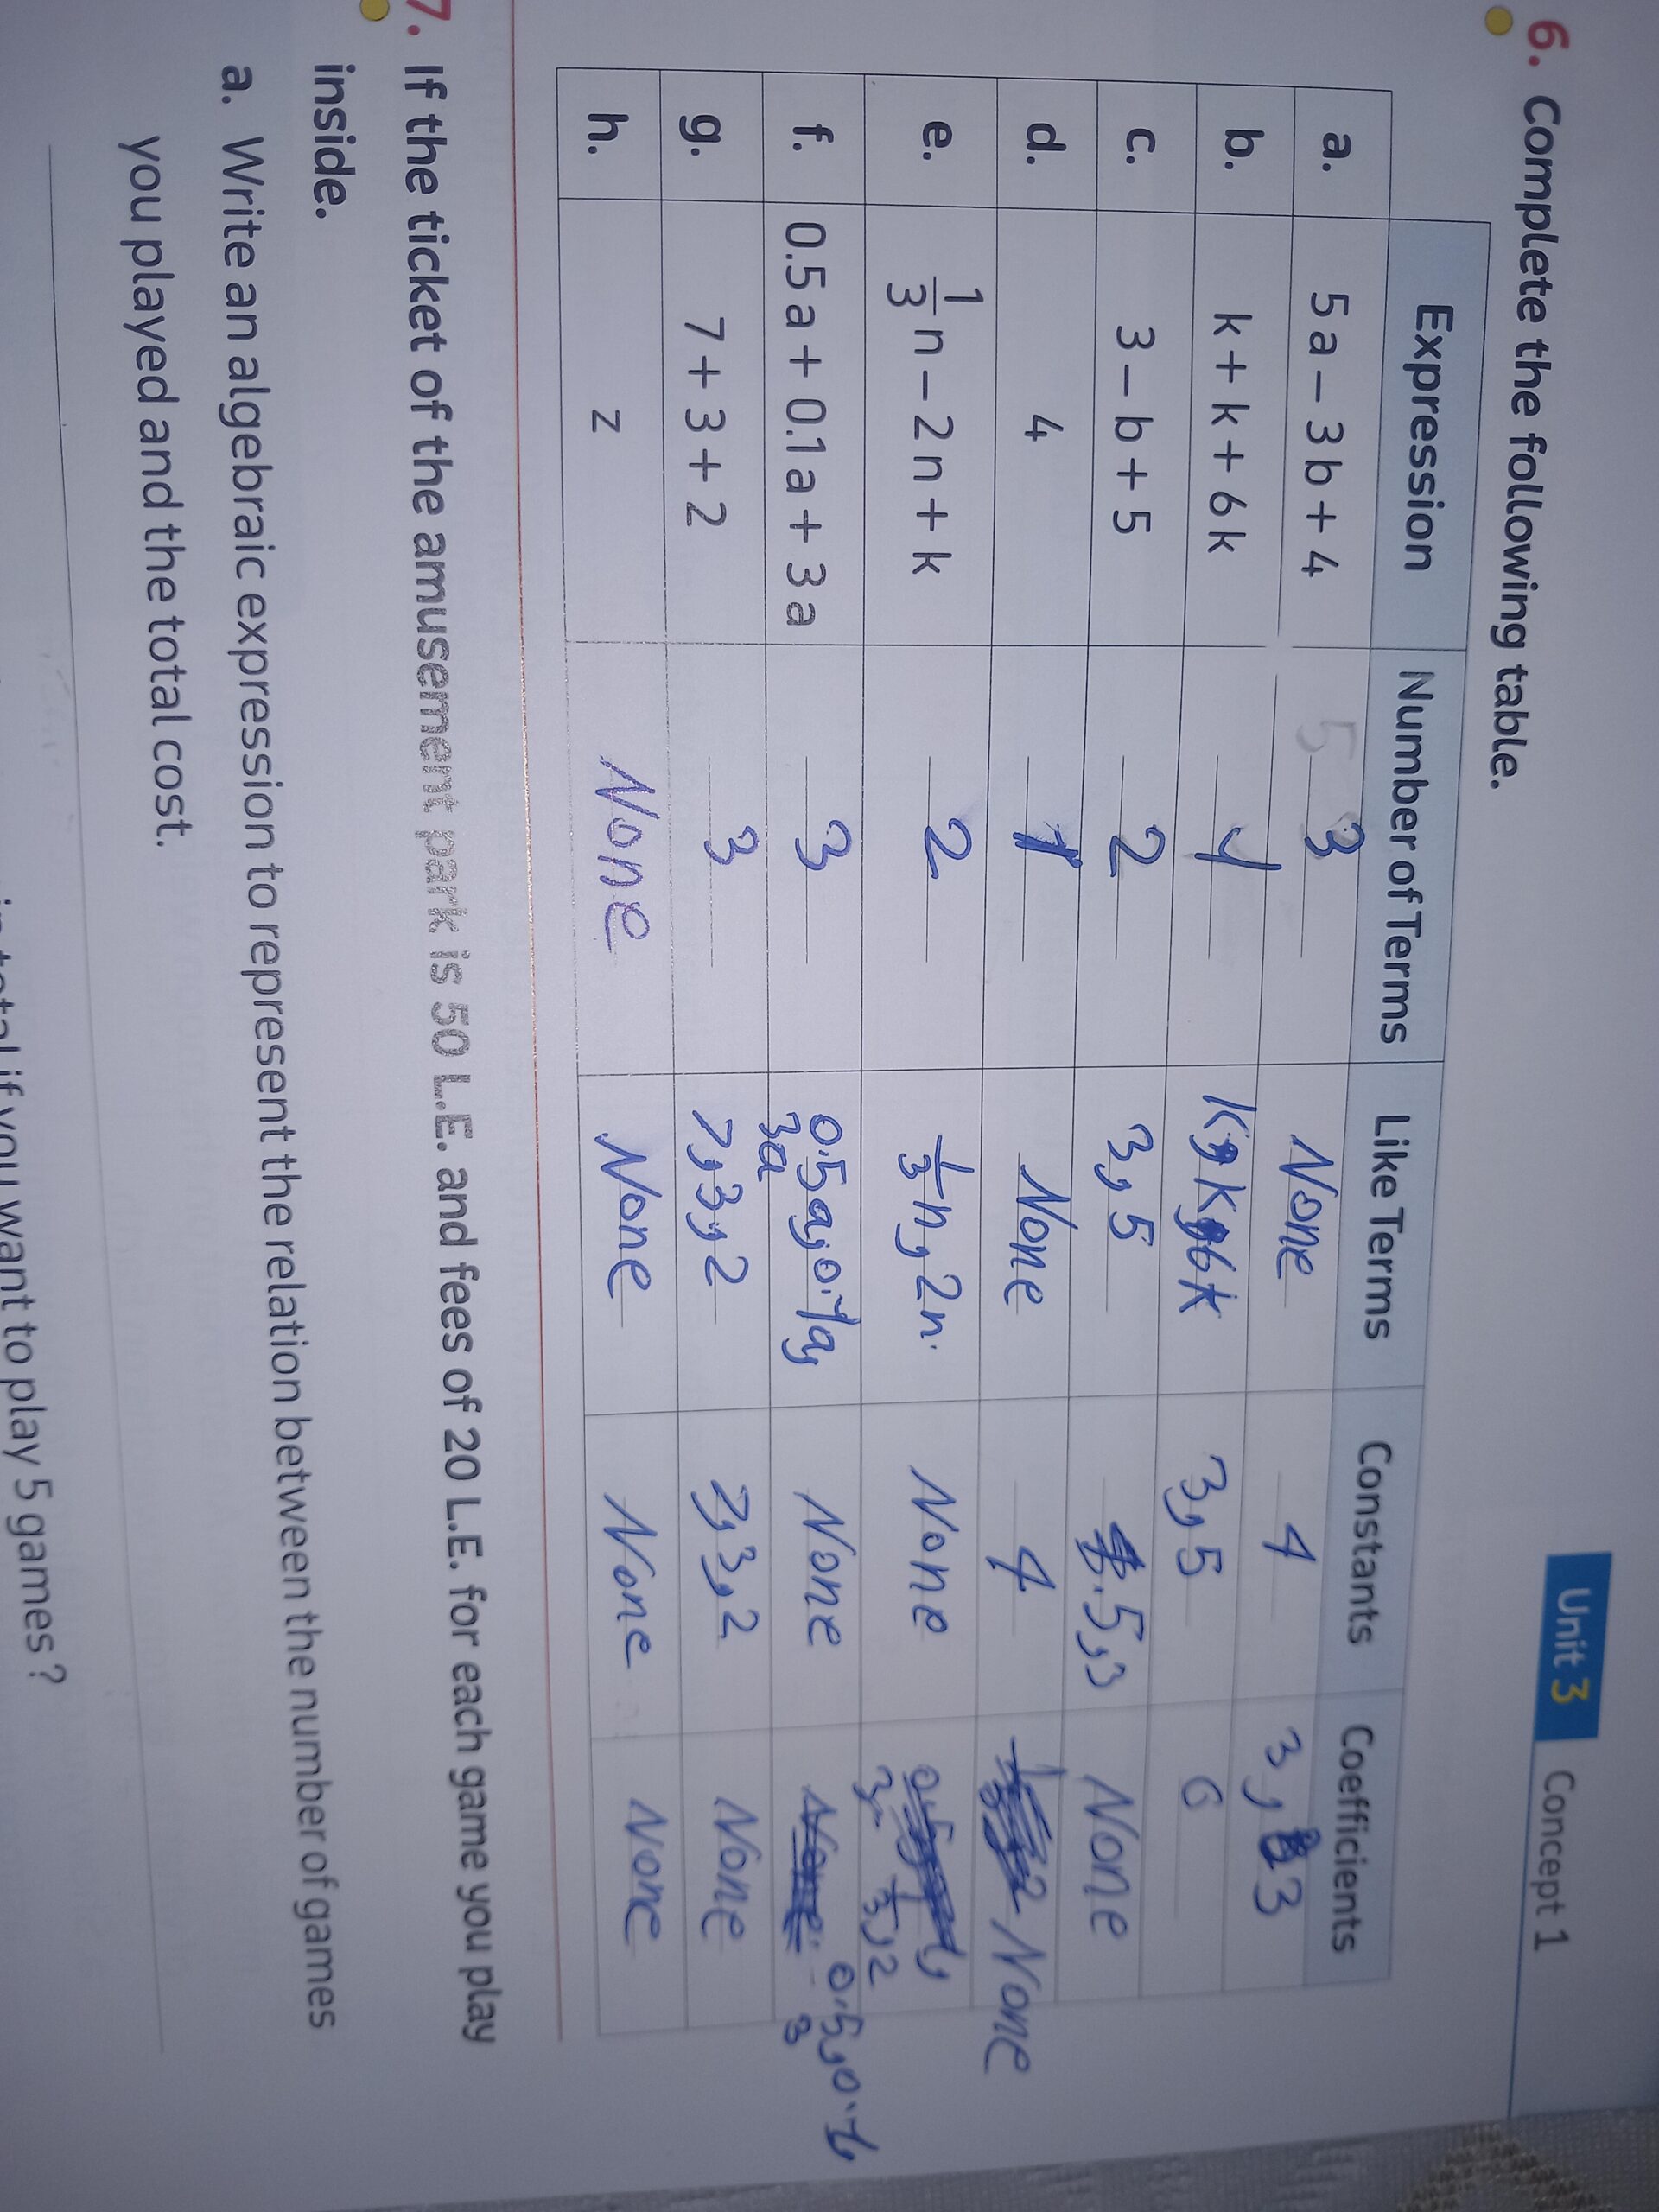 Unit 3 Concept 1
6. Complete the following table.
Expression Number of Terms Like Terms Constants Coefficients
a. 5a – 3b + 4 5 3 None 4 3, 3
b. k + k + 6k 1 k, k, 6k 3, 5 6
c. 3 – b + 5 2 3, 5 5, 3 None
d. 4 1 None 4 None
e. 1/3 n – 2n + k 2 1/3 n, 2n. None 1/3, 2
f. 0.5a + 0.1a + 3a 3 0.5a, 0.1a, 3a None 0.5, 0.1, 3
g. 7 + 3 + 2 3 7, 3, 2 7, 3, 2 None
h. z None None None None
7. If the ticket of the amusement park is 50 L.E. and fees of 20 L.E. for each game you play
inside.
a. Write an algebraic expression to represent the relation between the number of games
you played and the total cost.
total if you want to play 5 games?